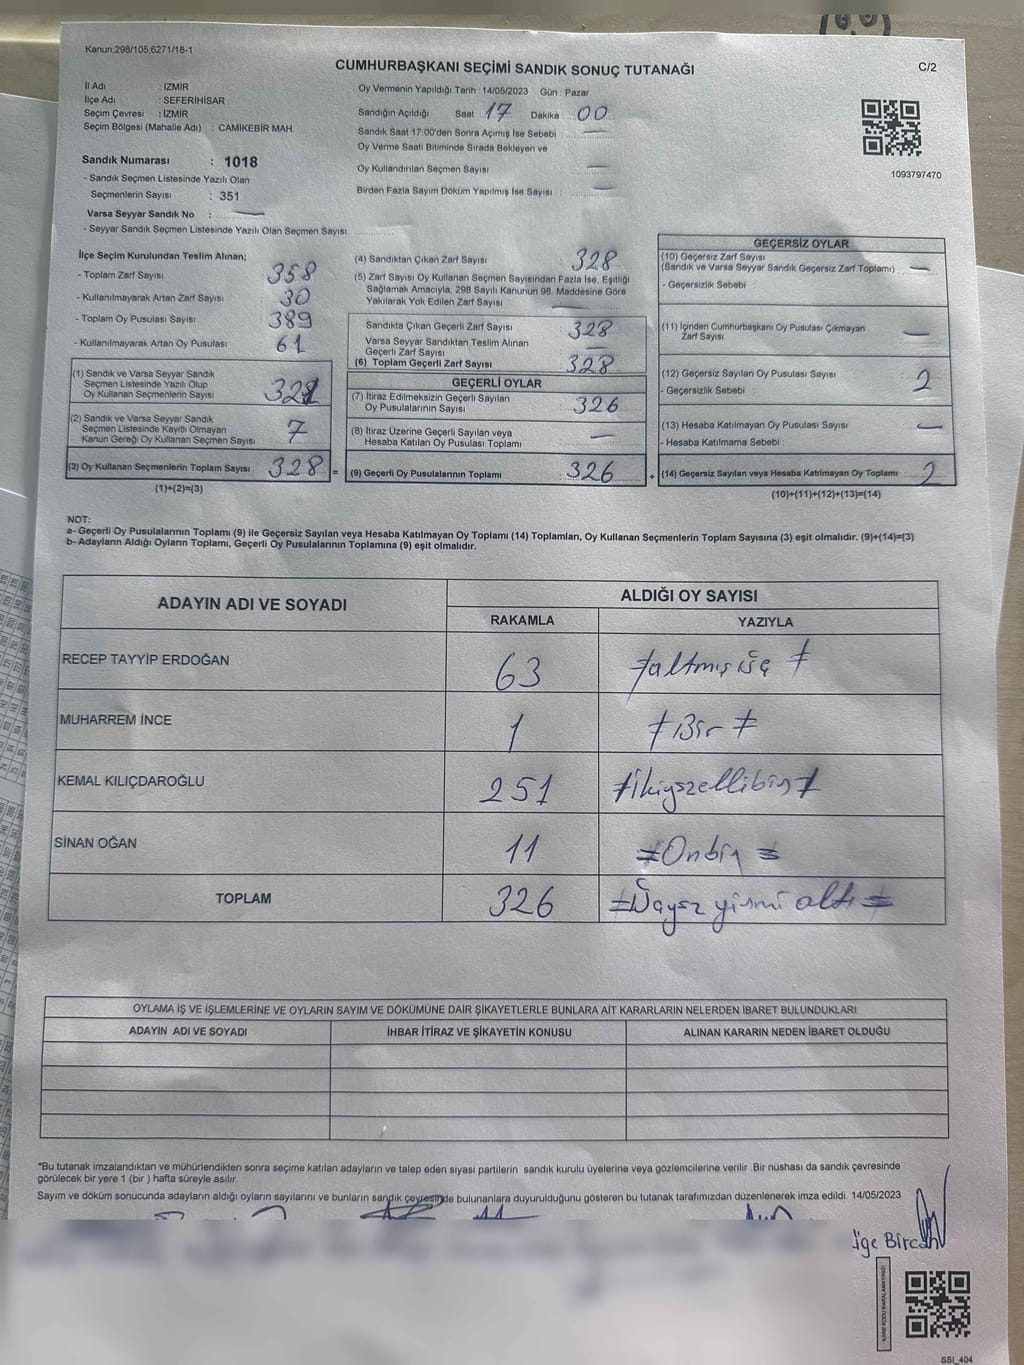 Kanun:298/105:6271/18-1
CUMHURBAŞKANI SEÇİMİ SANDIK SONUÇ TUTANAĞI
C/2
İl Adı : İZMİR
İlçe Adı : SEFERİHİSAR
Seçim Çevresi : İZMİR
Seçim Bölgesi (Mahalle Adı) : CAMİKEBİR MAH.
Sandık Numarası : 1018
- Sandık Seçmen Listesinde Yazılı Olan
Seçmenlerin Sayısı : 351
Varsa Seyyar Sandık No :
- Seyyar Sandık Seçmen Listesinde Yazılı Olan Seçmen Sayısı
Oy Vermenin Yapıldığı Tarih : 14/05/2023 Gün : Pazar
Sandığın Açıldığı Saat 17 Dakika 00
Sandık Saat 17:00'den Sonra Açımış İse Sebebi
Oy Verme Saati Bitiminde Sırada Bekleyen ve
Oy Kullandırılan Seçmen Sayısı
Birden Fazla Sayım Döküm Yapılmış İse Sayısı
1093797470
İlçe Seçim Kurulundan Teslim Alınan;
- Toplam Zarf Sayısı 358
- Kullanılmayarak Artan Zarf Sayısı 30
- Toplam Oy Pusulası Sayısı 389
- Kullanılmayarak Artan Oy Pusulası 61
(1) Sandık ve Varsa Seyyar Sandık
Seçmen Listesinde Yazılı Olup
Oy Kullanan Seçmenlerin Sayısı 321
(2) Sandık ve Varsa Seyyar Sandık
Seçmen Listesinde Kayıtlı Olmayan
Kanun Gereği Oy Kullanan Seçmen Sayısı 7
(3) Oy Kullanan Seçmenlerin Toplam Sayısı 328 =
(1)+(2)=(3)
(4) Sandıktan Çıkan Zarf Sayısı 328
(5) Zarf Sayısı Oy Kullanan Seçmen Sayısından Fazla İse, Eşitliği
Sağlamak Amacıyla, 298 Sayılı Kanunun 98. Maddesine Göre
Yakılarak Yok Edilen Zarf Sayısı
Sandıkta Çıkan Geçerli Zarf Sayısı 328
Varsa Seyyar Sandıktan Teslim Alınan
Geçerli Zarf Sayısı
(6) Toplam Geçerli Zarf Sayısı 328
GEÇERLİ OYLAR
(7) İtiraz Edilmeksizin Geçerli Sayılan
Oy Pusulalarının Sayısı 326
(8) İtiraz Üzerine Geçerli Sayılan veya
Hesaba Katılan Oy Pusulası Toplamı
(9) Geçerli Oy Pusulalarının Toplamı 326 +
GEÇERSİZ OYLAR
(10) Geçersiz Zarf Sayısı
(Sandık ve Varsa Seyyar Sandık Geçersiz Zarf Toplamı)
- Geçersizlik Sebebi
(11) İçinden Cumhurbaşkanı Oy Pusulası Çıkmayan
Zarf Sayısı
(12) Geçersiz Sayılan Oy Pusulası Sayısı 2
- Geçersizlik Sebebi
(13) Hesaba Katılmayan Oy Pusulası Sayısı
- Hesaba Katılmama Sebebi :
(14) Geçersiz Sayılan veya Hesaba Katılmayan Oy Toplamı 2
(10)+(11)+(12)+(13)=(14)
NOT:
a- Geçerli Oy Pusulalarının Toplamı (9) ile Geçersiz Sayılan veya Hesaba Katılmayan Oy Toplamı (14) Toplamları, Oy Kullanan Seçmenlerin Toplam Sayısına (3) eşit olmalıdır. (9)+(14)=(3)
b- Adayların Aldığı Oyların Toplamı, Geçerli Oy Pusulalarının Toplamına (9) eşit olmalıdır.
ADAYIN ADI VE SOYADI ALDIĞI OY SAYISI
RAKAMLA YAZIYLA
RECEP TAYYİP ERDOĞAN 63 altmış üç
MUHARREM İNCE 1 Bir
KEMAL KILIÇDAROĞLU 251 ikiyüzellibir
SİNAN OĞAN 11 Onbir
TOPLAM 326 Üçyüz yirmi altı
OYLAMA İŞ VE İŞLEMLERİNE VE OYLARIN SAYIM VE DÖKÜMÜNE DAİR ŞİKAYETLERLE BUNLARA AİT KARARLARIN NELERDEN İBARET BULUNDUKLARI
ADAYIN ADI VE SOYADI İHBAR İTİRAZ VE ŞİKAYETİN KONUSU ALINAN KARARIN NEDEN İBARET OLDUĞU
*Bu tutanak imzalandıktan ve mühürlendikten sonra seçime katılan adayların ve talep eden siyasi partilerin sandık kurulu üyelerine veya gözlemcilerine verilir. Bir nüshası da sandık çevresinde
görülecek bir yere 1 (bir ) hafta süreyle asılır.
Sayım ve döküm sonucunda adayların aldığı oyların sayılarını ve bunların sandık çevresinde bulunanlara duyurulduğunu gösteren bu tutanak tarafımızdan düzenlenerek imza edildi. 14/05/2023
Bircan
KARE KODU KARALAMAYINIZ!
SSI_404